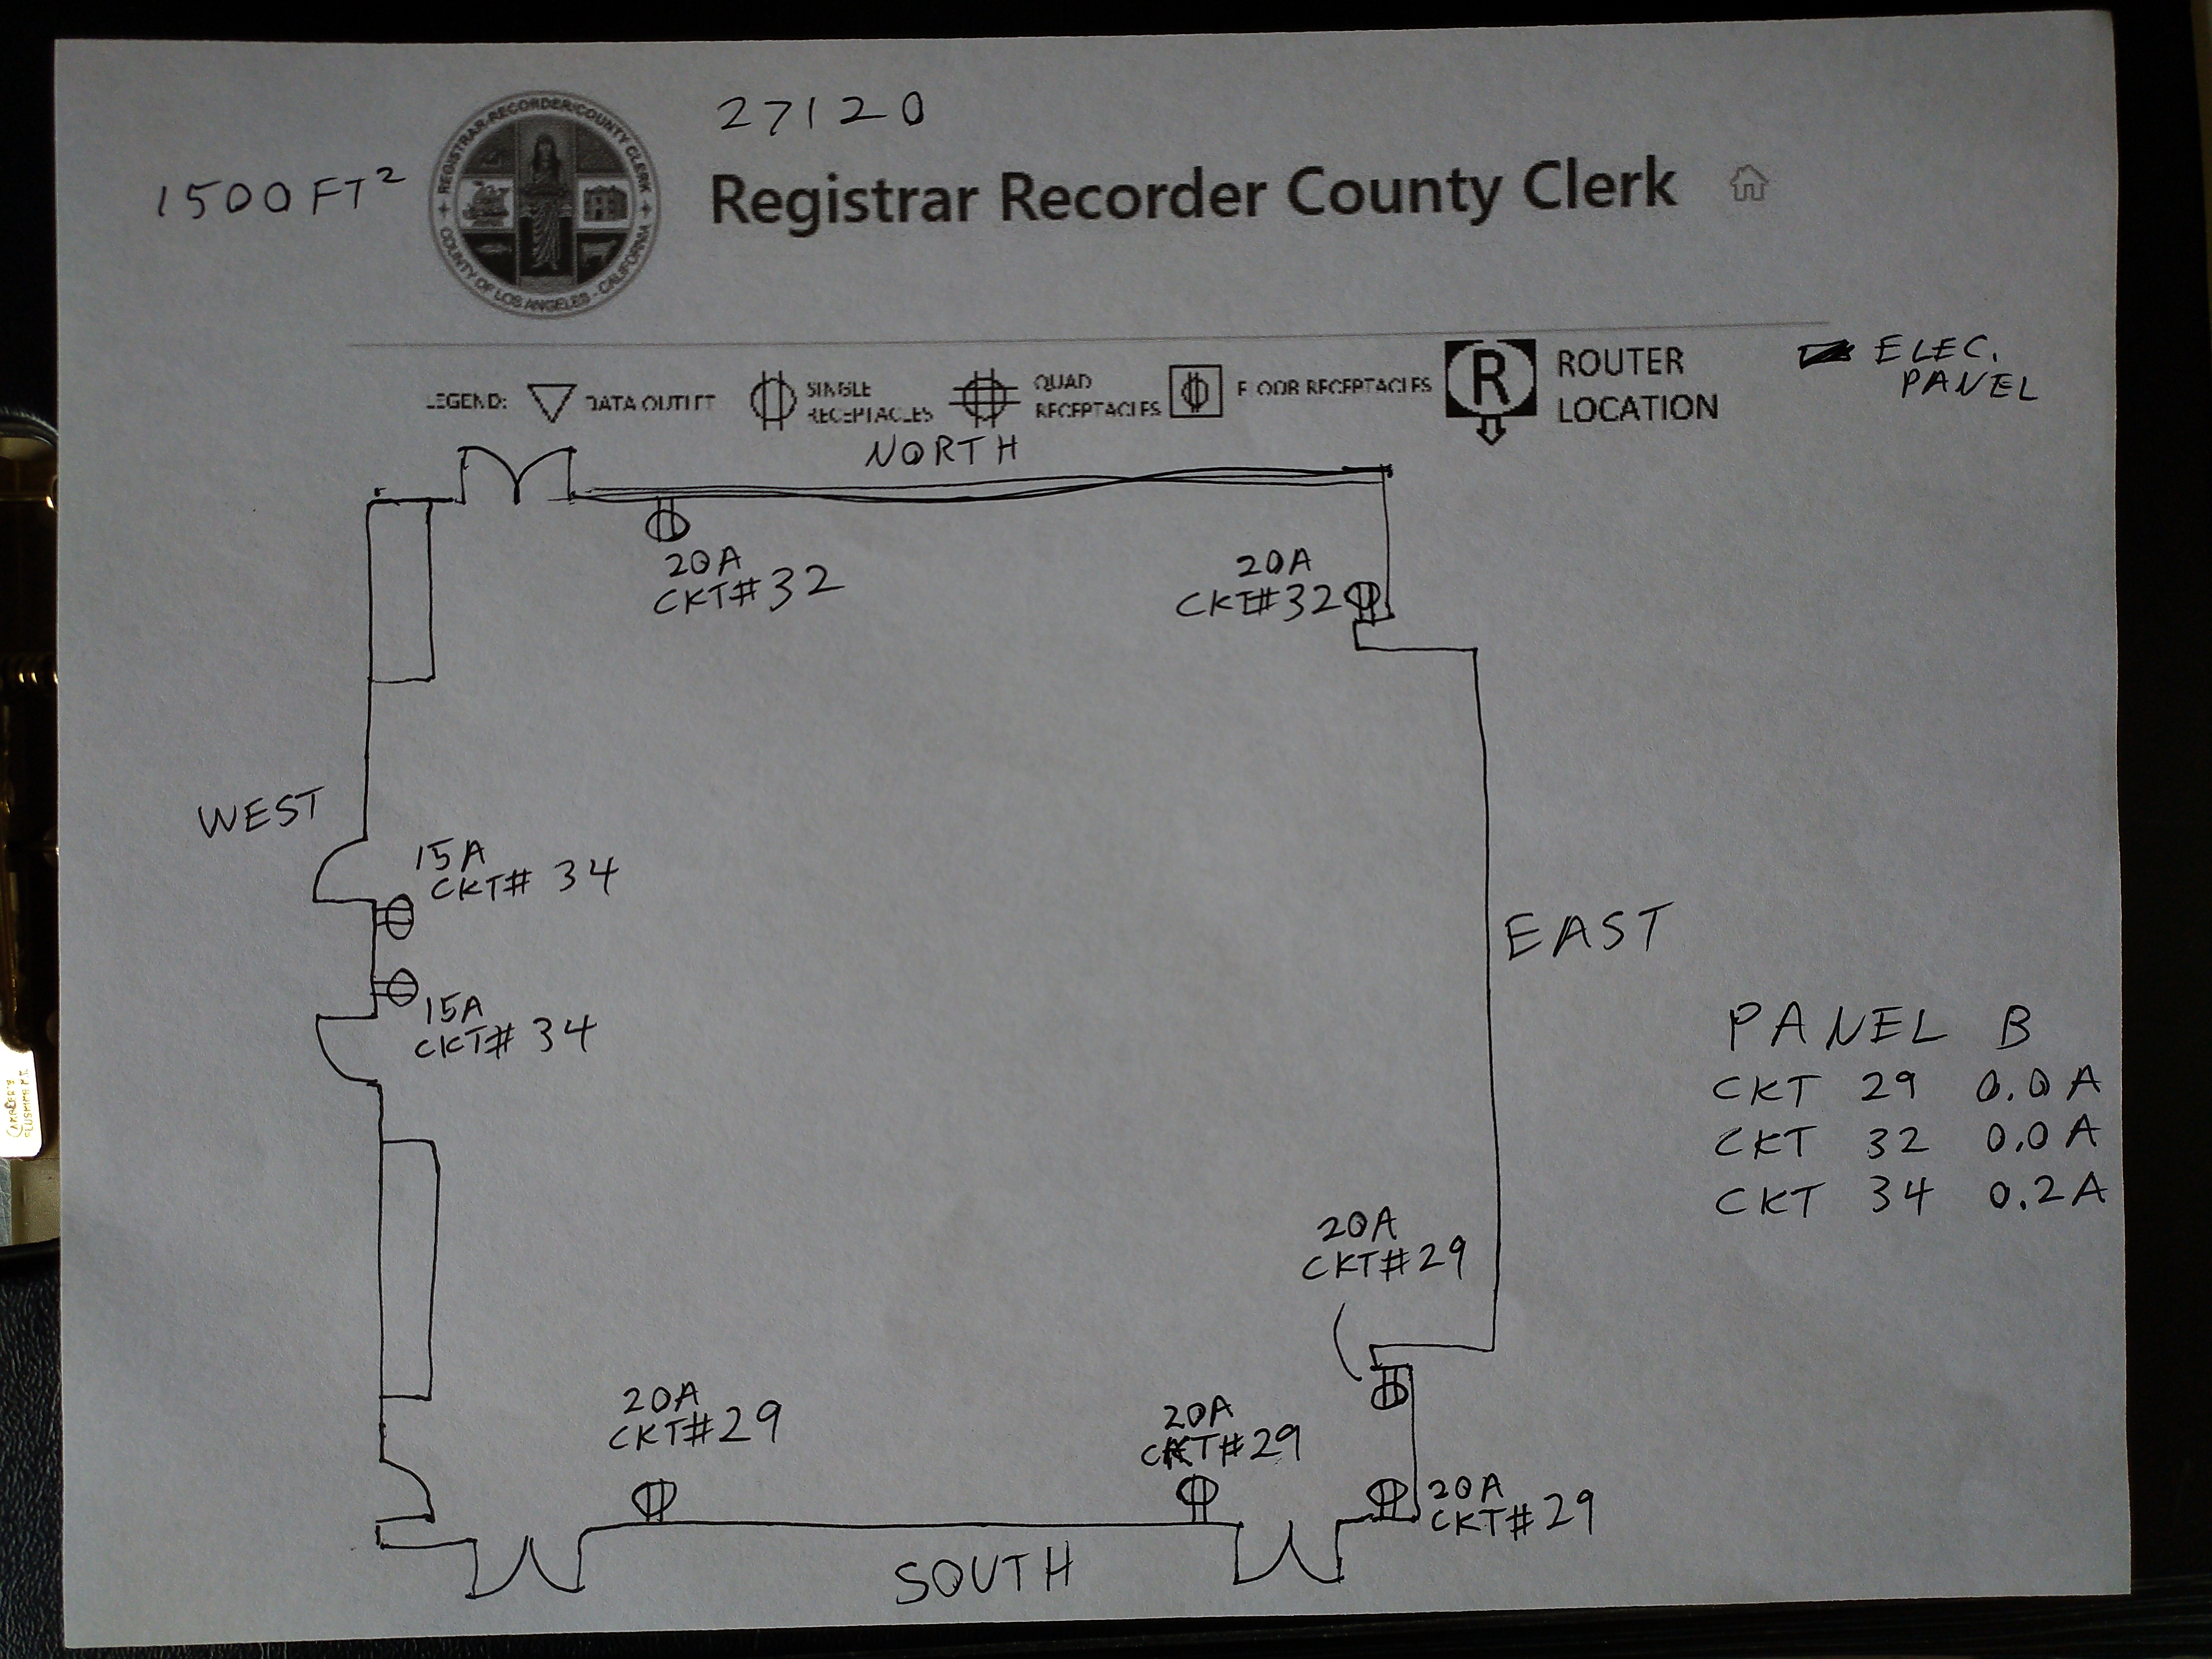 27120
1500FT²
REGISTRAR-RECORDER/COUNTY CLERK
COUNTY OF LOS ANGELES - CALIFORNIA
Registrar Recorder County Clerk
LEGEND:
DATA OUTLET
SINGLE
RECEPTACLES
QUAD
RECEPTACLES
FLOOR RECEPTACLES
R
ROUTER
LOCATION
ELEC.
PANEL
NORTH
20A
CKT# 32
20A
CKT# 32
WEST
15A
CKT# 34
15A
CKT# 34
EAST
PANEL B
CKT 29 0.0A
CKT 32 0.0A
CKT 34 0.2A
20A
CKT# 29
20A
CKT# 29
20A
CKT# 29
20A
CKT# 29
SOUTH